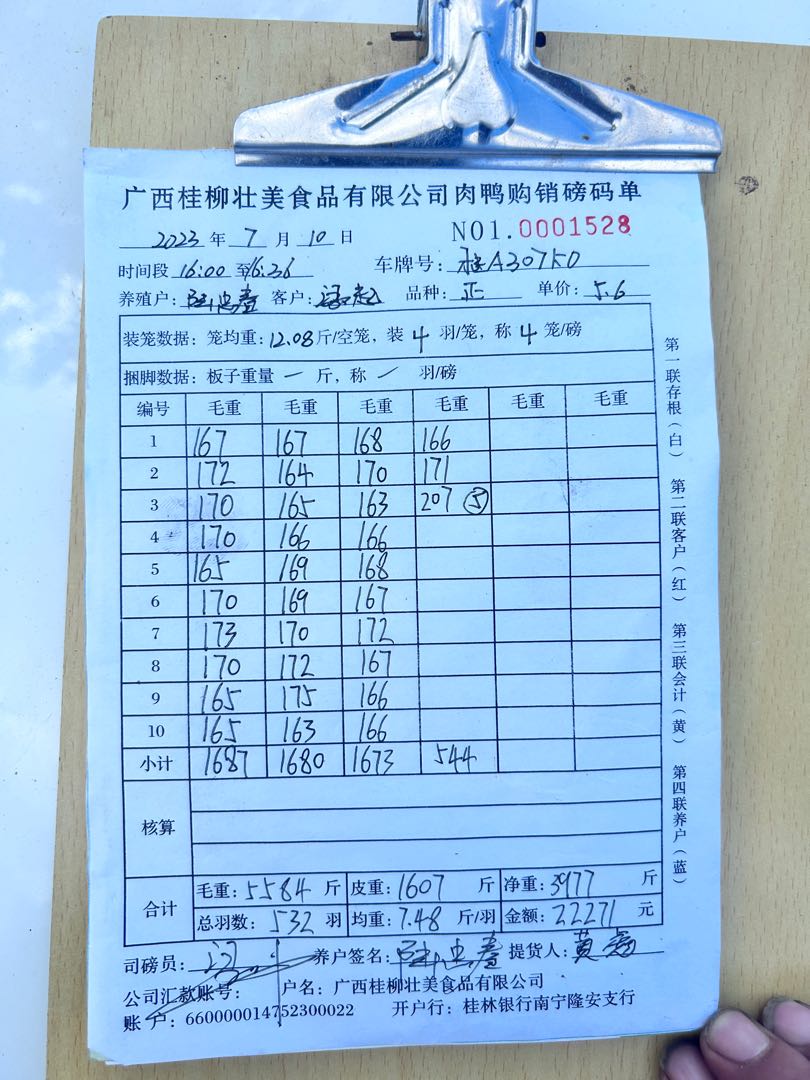 广西桂柳壮美食品有限公司肉鸭购销磅码单
2023 年 7 月 10 日 NO1.0001528
时间段 16:00 至 16:36 车牌号: 桂A307K0
养殖户: 客户: 品种: 正 单价: 5.6
装笼数据: 笼均重: 12.08 斤/空笼, 装 4 羽/笼, 称 4 笼/磅
捆脚数据: 板子重量 一 斤, 称 / 羽/磅
编号 毛重 毛重 毛重 毛重 毛重 毛重
1 167 167 168 166
2 172 164 170 171
3 170 165 163 207 ⑤
4 170 166 166
5 165 169 168
6 170 169 167
7 173 170 172
8 170 172 167
9 165 175 166
10 165 163 166
小计 1687 1680 1673 544
核算
合计 毛重: 5584 斤 皮重: 1607 斤 净重: 3977 斤
总羽数: 532 羽 均重: 7.48 斤/羽 金额: 22271 元
司磅员: 养户签名: 提货人: 黄
公司汇款账号: 户名: 广西桂柳壮美食品有限公司
账 户: 660000014752300022 开户行: 桂林银行南宁隆安支行
第一联存根(白)
第二联客户(红)
第三联会计(黄)
第四联养户(蓝)